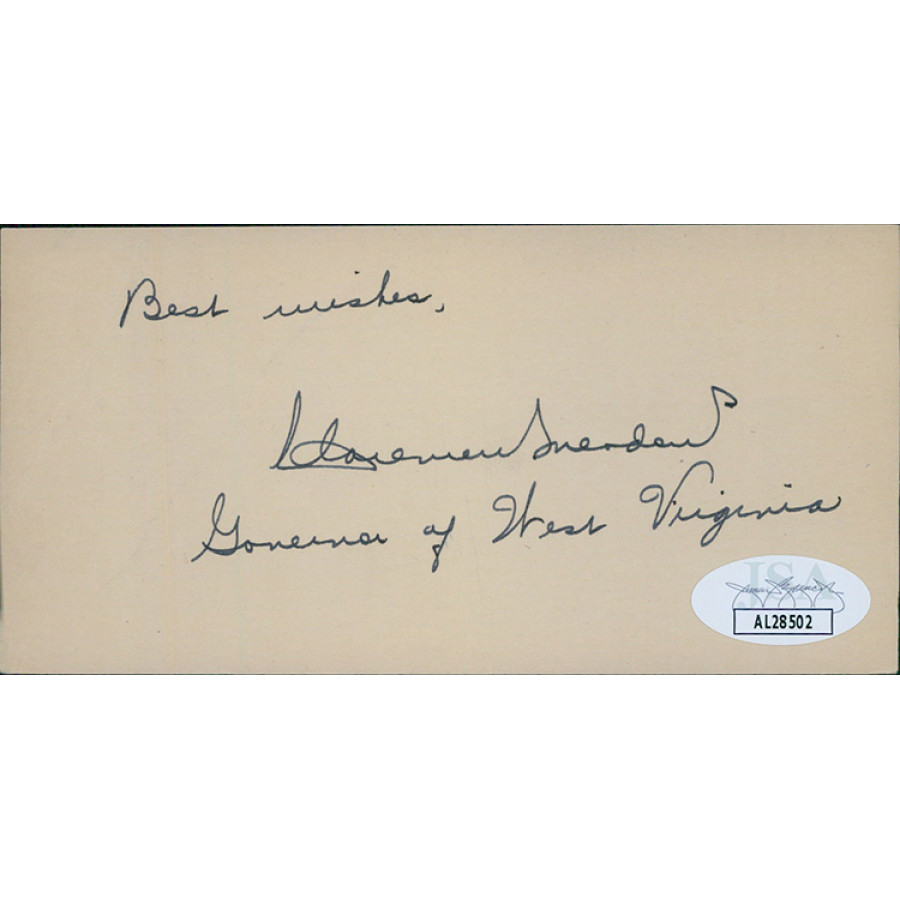 Best wishes,
Clarence W. Meadows
Governor of West Virginia
JSA
AL28502